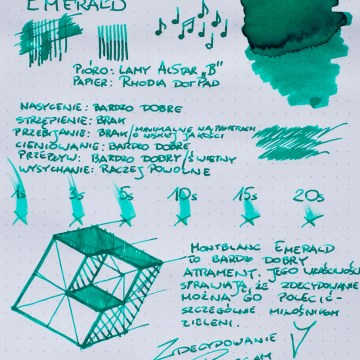 EMERALD
PIÓRO: LAMY ALSTAR „B"
PAPIER: RHODIA DOTPAD
NASYCENIE: BARDZO DOBRE
STRZĘPIENIE: BRAK
PRZEBIJANIE: BRAK/MINIMALNE NA PAPIERACH O NISKIEJ JAKOŚCI
CIENIOWANIE: BARDZO DOBRE
PRZEPŁYW: BARDZO DOBRY/ŚWIETNY
WYSYCHANIE: RACZEJ POWOLNE
1s 3s 5s 10s 15s 20s
MONTBLANC EMERALD
TO BARDZO DOBRY
ATRAMENT. JEGO WŁAŚCIWOŚCI
SPRAWIAJĄ, ŻE ZDECYDOWANIE
MOŻNA GO POLECIĆ -
SZCZEGÓLNIE MIŁOŚNIKOM
ZIELENI.
ZDECYDOWANIE